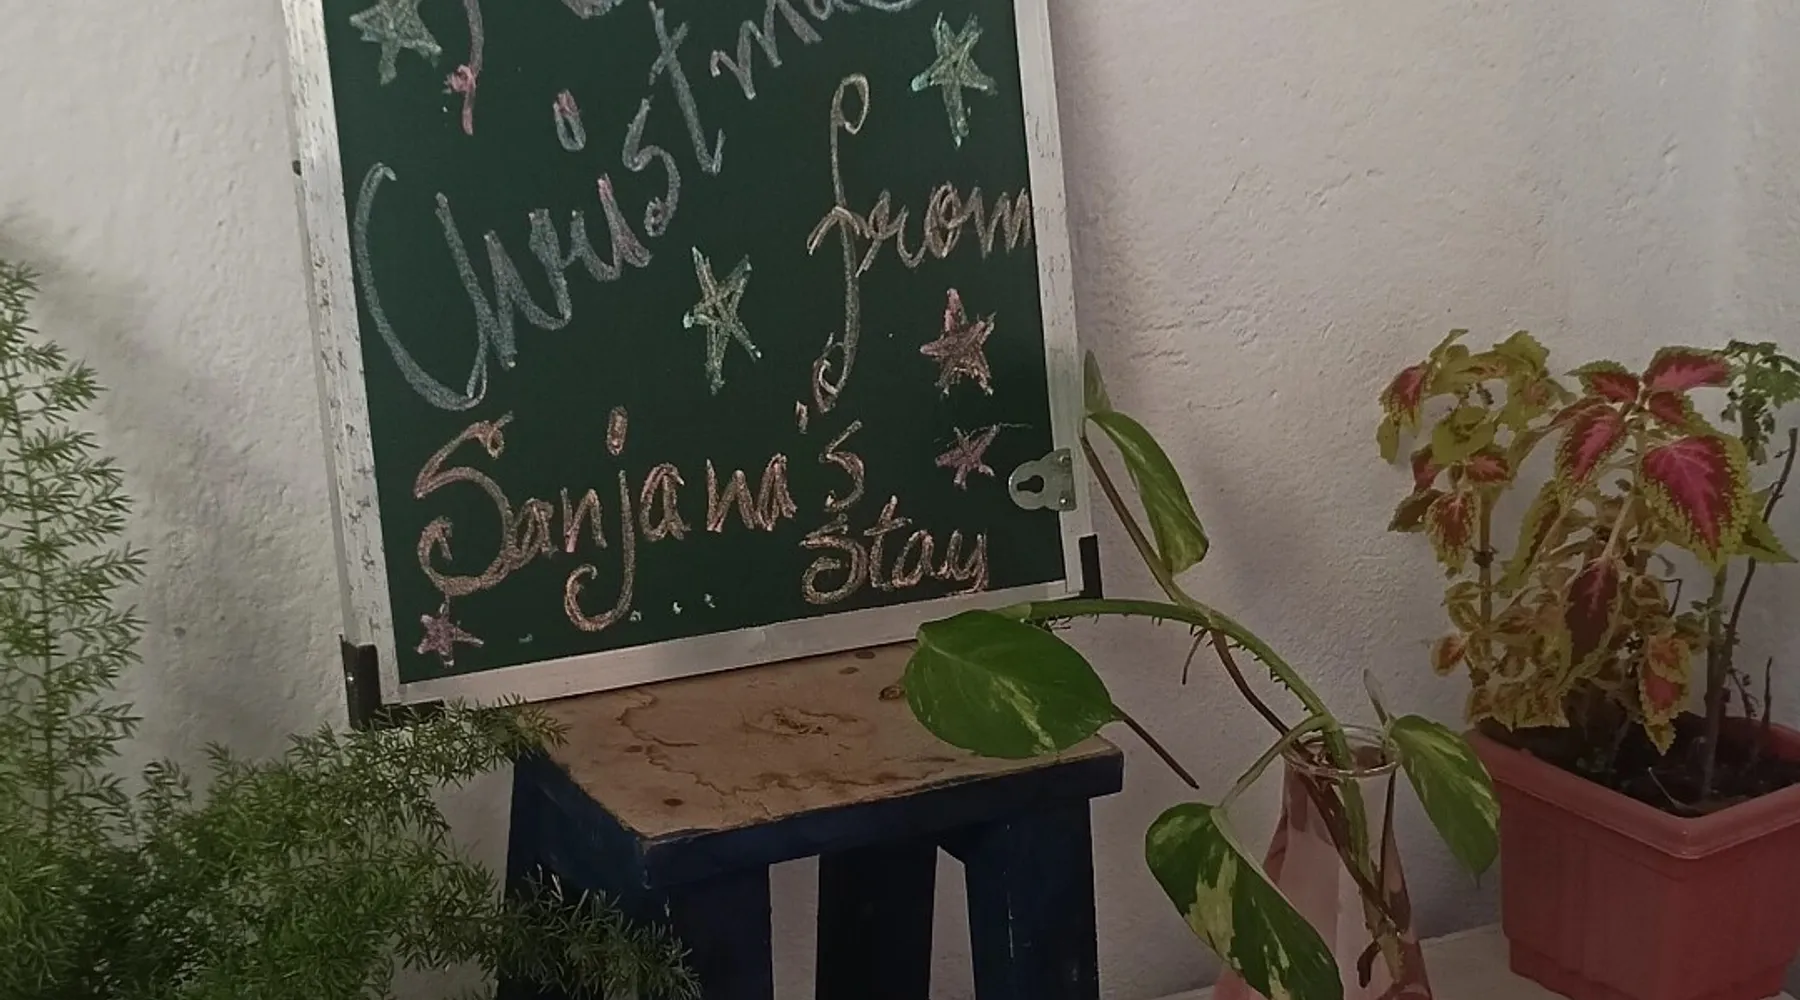 Christmas
from
Sanjana's
Stay